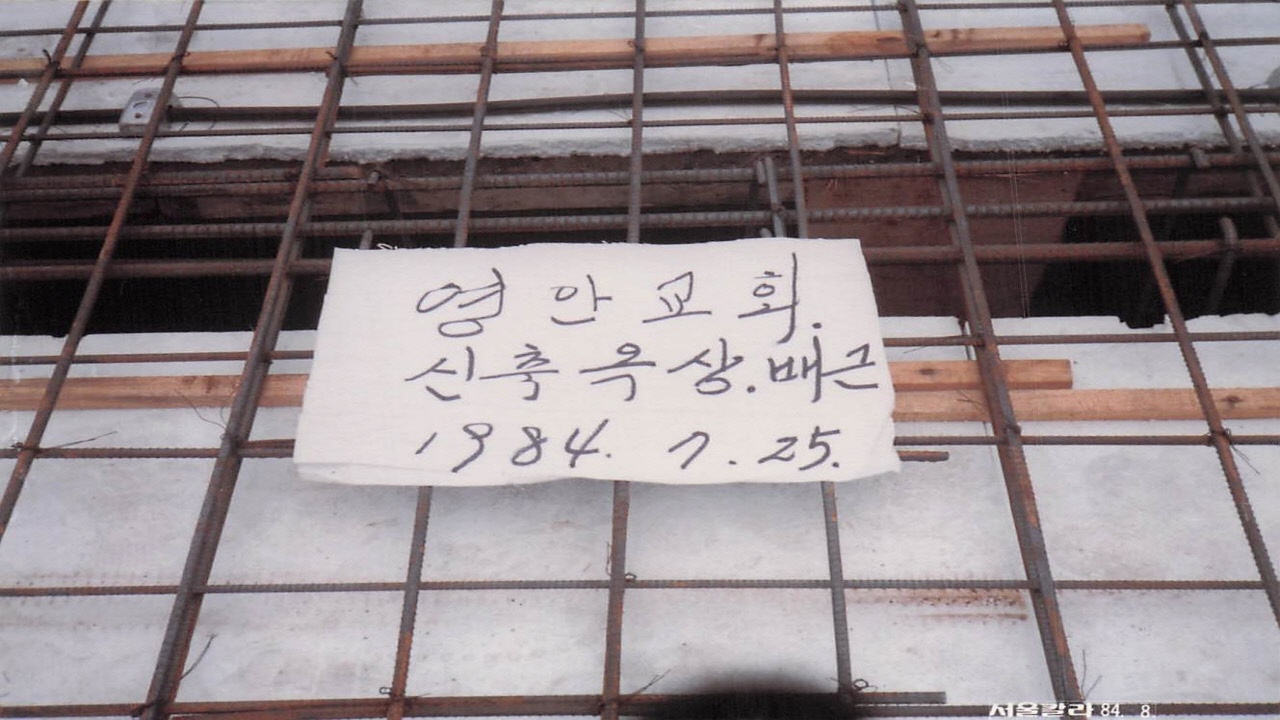 영안교회.
신축옥상.배근
1984. 7. 25.
서울칼라 84. 8